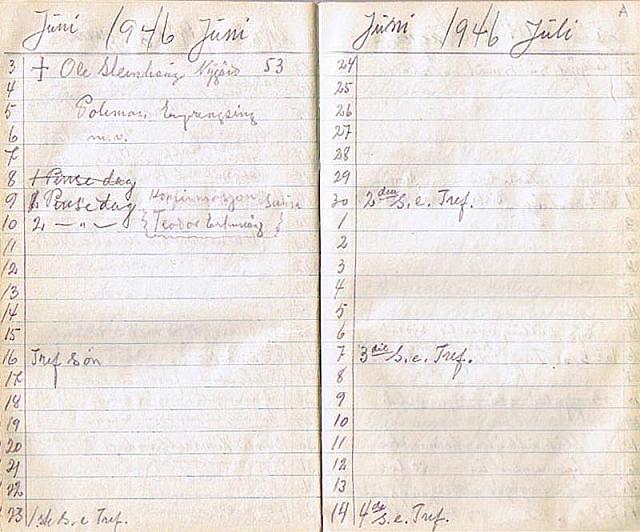 Juni 1946 Juni
3 + Ole Nygård 53
4
5
6 m.v.
7
8 1 Pinsedag
9 1. Pinsedag Konfirmasjon
10 2 — " — { Teodor }
11
12
13
14
15
16 Tref Søn
17
18
19
20
21
22
23 1ste S. e Tref.
Juni 1946 Juli
24
25
26
27
28
29
30 2den S. e. Tref.
1
2
3
4
5
6
7 3die S. e. Tref.
8
9
10
11
12
13
14 4de S. e. Tref.
A